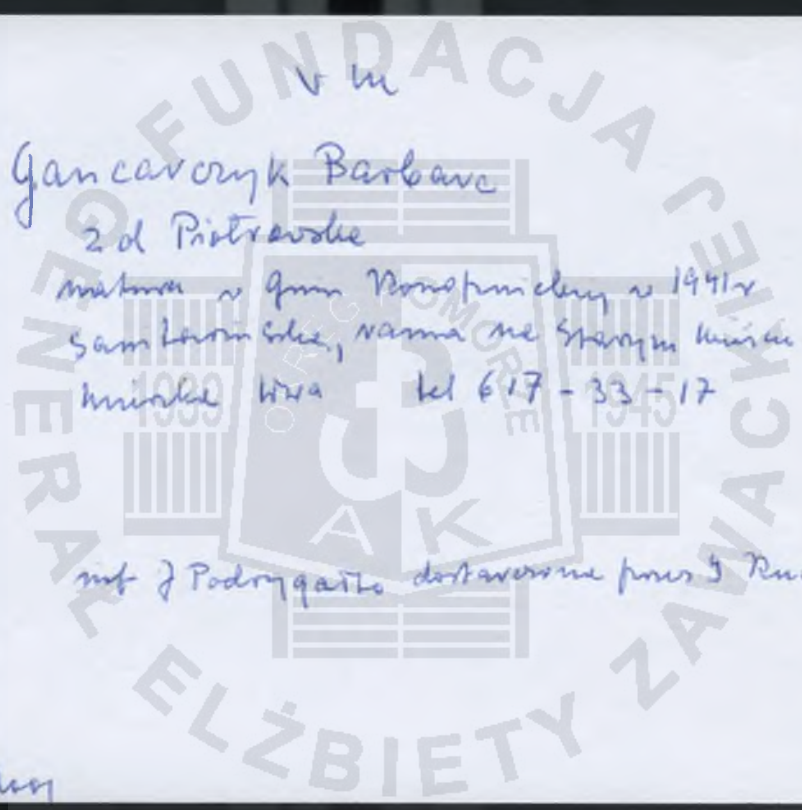 V m
Gancarczyk Barbara
z d Piotrowska
matura w Gimn Konopnickiej w 1941 r
Sanitariuszka, ranna na Starym Mieście
mieszka tel 617-33-17
inf J Podrygałło dostarczone przez J
FUNDACJA GENERAŁ ELŻBIETY ZAWACKIEJ
OKRĘG POMORZE
1939 1945
AK